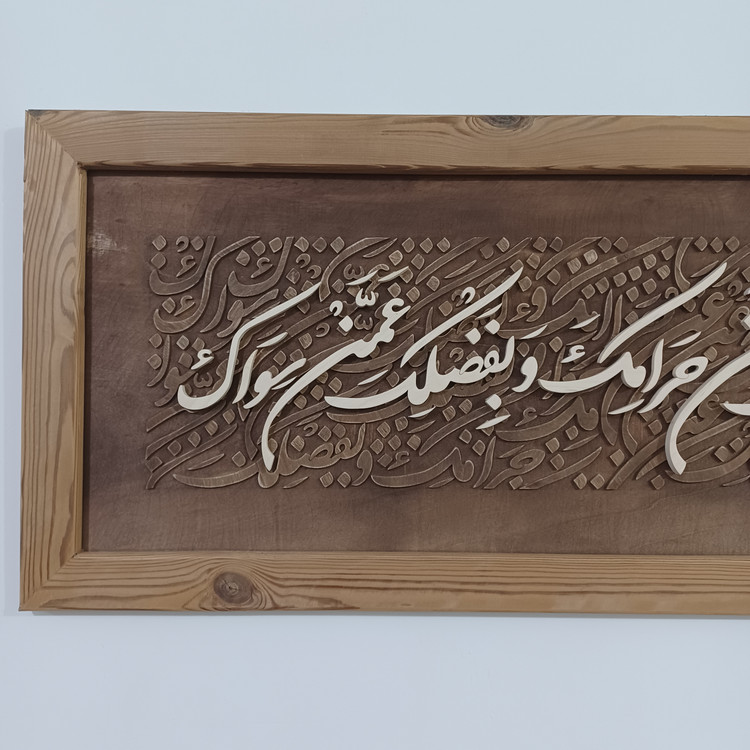 حَرَامِكَ وَبِفَضْلِكَ عَمَّنْ سِوَاكَ